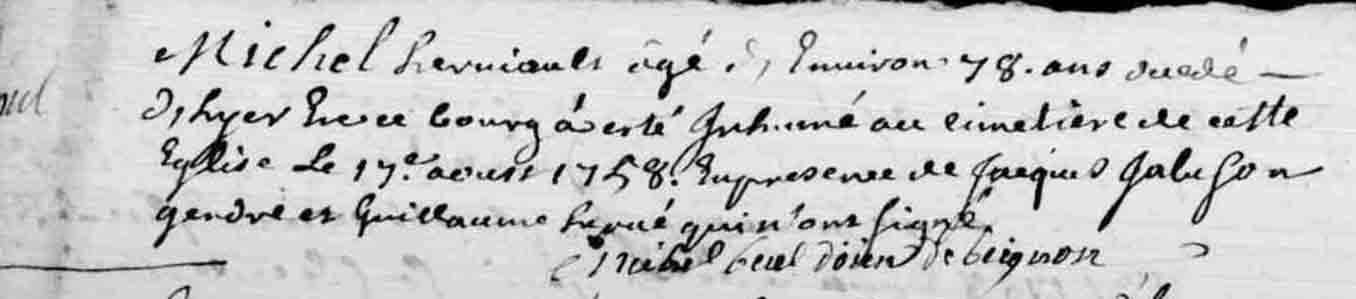 Michel herviault âgé d'Environ 78. ans decedé
d'hyer En ce bourg à esté Inhumé au cimetiere de cette
Eglise Le 17e. aoust 1758. En presence de Jacques Jalu Son
gendre et Guillaume hervé qui n'ont Signé
Michel doien de beignon